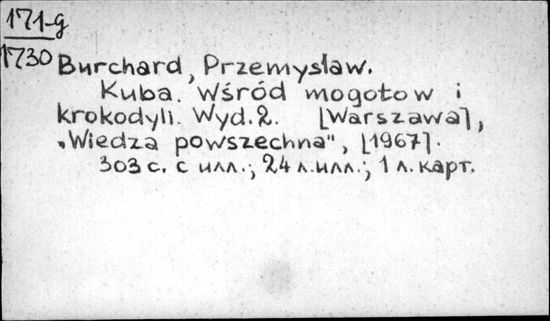 171-g
1730
Burchard, Przemysław.
Kuba. Wśród mogotow i
krokodyli. Wyd. 2. [Warszawa],
„Wiedza powszechna", [1967].
303 с. с илл.; 24 л. илл.; 1 л. карт.